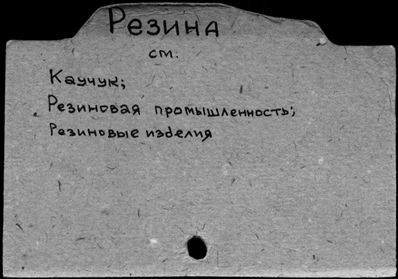 Резина
см.
Каучук;
Резиновая промышленность;
Резиновые изделия